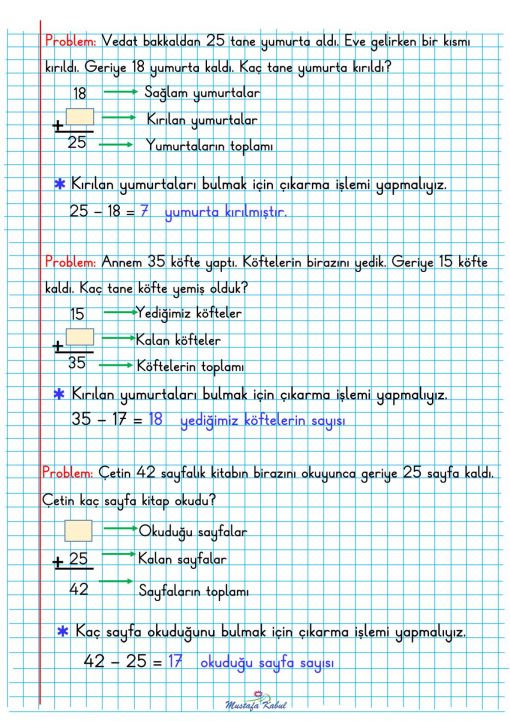 Problem: Vedat bakkaldan 25 tane yumurta aldı. Eve gelirken bir kısmı
kırıldı. Geriye 18 yumurta kaldı. Kaç tane yumurta kırıldı?
18 Sağlam yumurtalar
+ Kırılan yumurtalar
25 Yumurtaların toplamı
* Kırılan yumurtaları bulmak için çıkarma işlemi yapmalıyız.
25 – 18 = 7 yumurta kırılmıştır.
Problem: Annem 35 köfte yaptı. Köftelerin birazını yedik. Geriye 15 köfte
kaldı. Kaç tane köfte yemiş olduk?
15 Yediğimiz köfteler
+ Kalan köfteler
35 Köftelerin toplamı
* Kırılan yumurtaları bulmak için çıkarma işlemi yapmalıyız.
35 – 17 = 18 yediğimiz köftelerin sayısı
Problem: Çetin 42 sayfalık kitabın birazını okuyunca geriye 25 sayfa kaldı.
Çetin kaç sayfa kitap okudu?
Okuduğu sayfalar
+ 25 Kalan sayfalar
42 Sayfaların toplamı
* Kaç sayfa okuduğunu bulmak için çıkarma işlemi yapmalıyız.
42 – 25 = 17 okuduğu sayfa sayısı
Mustafa Kabul